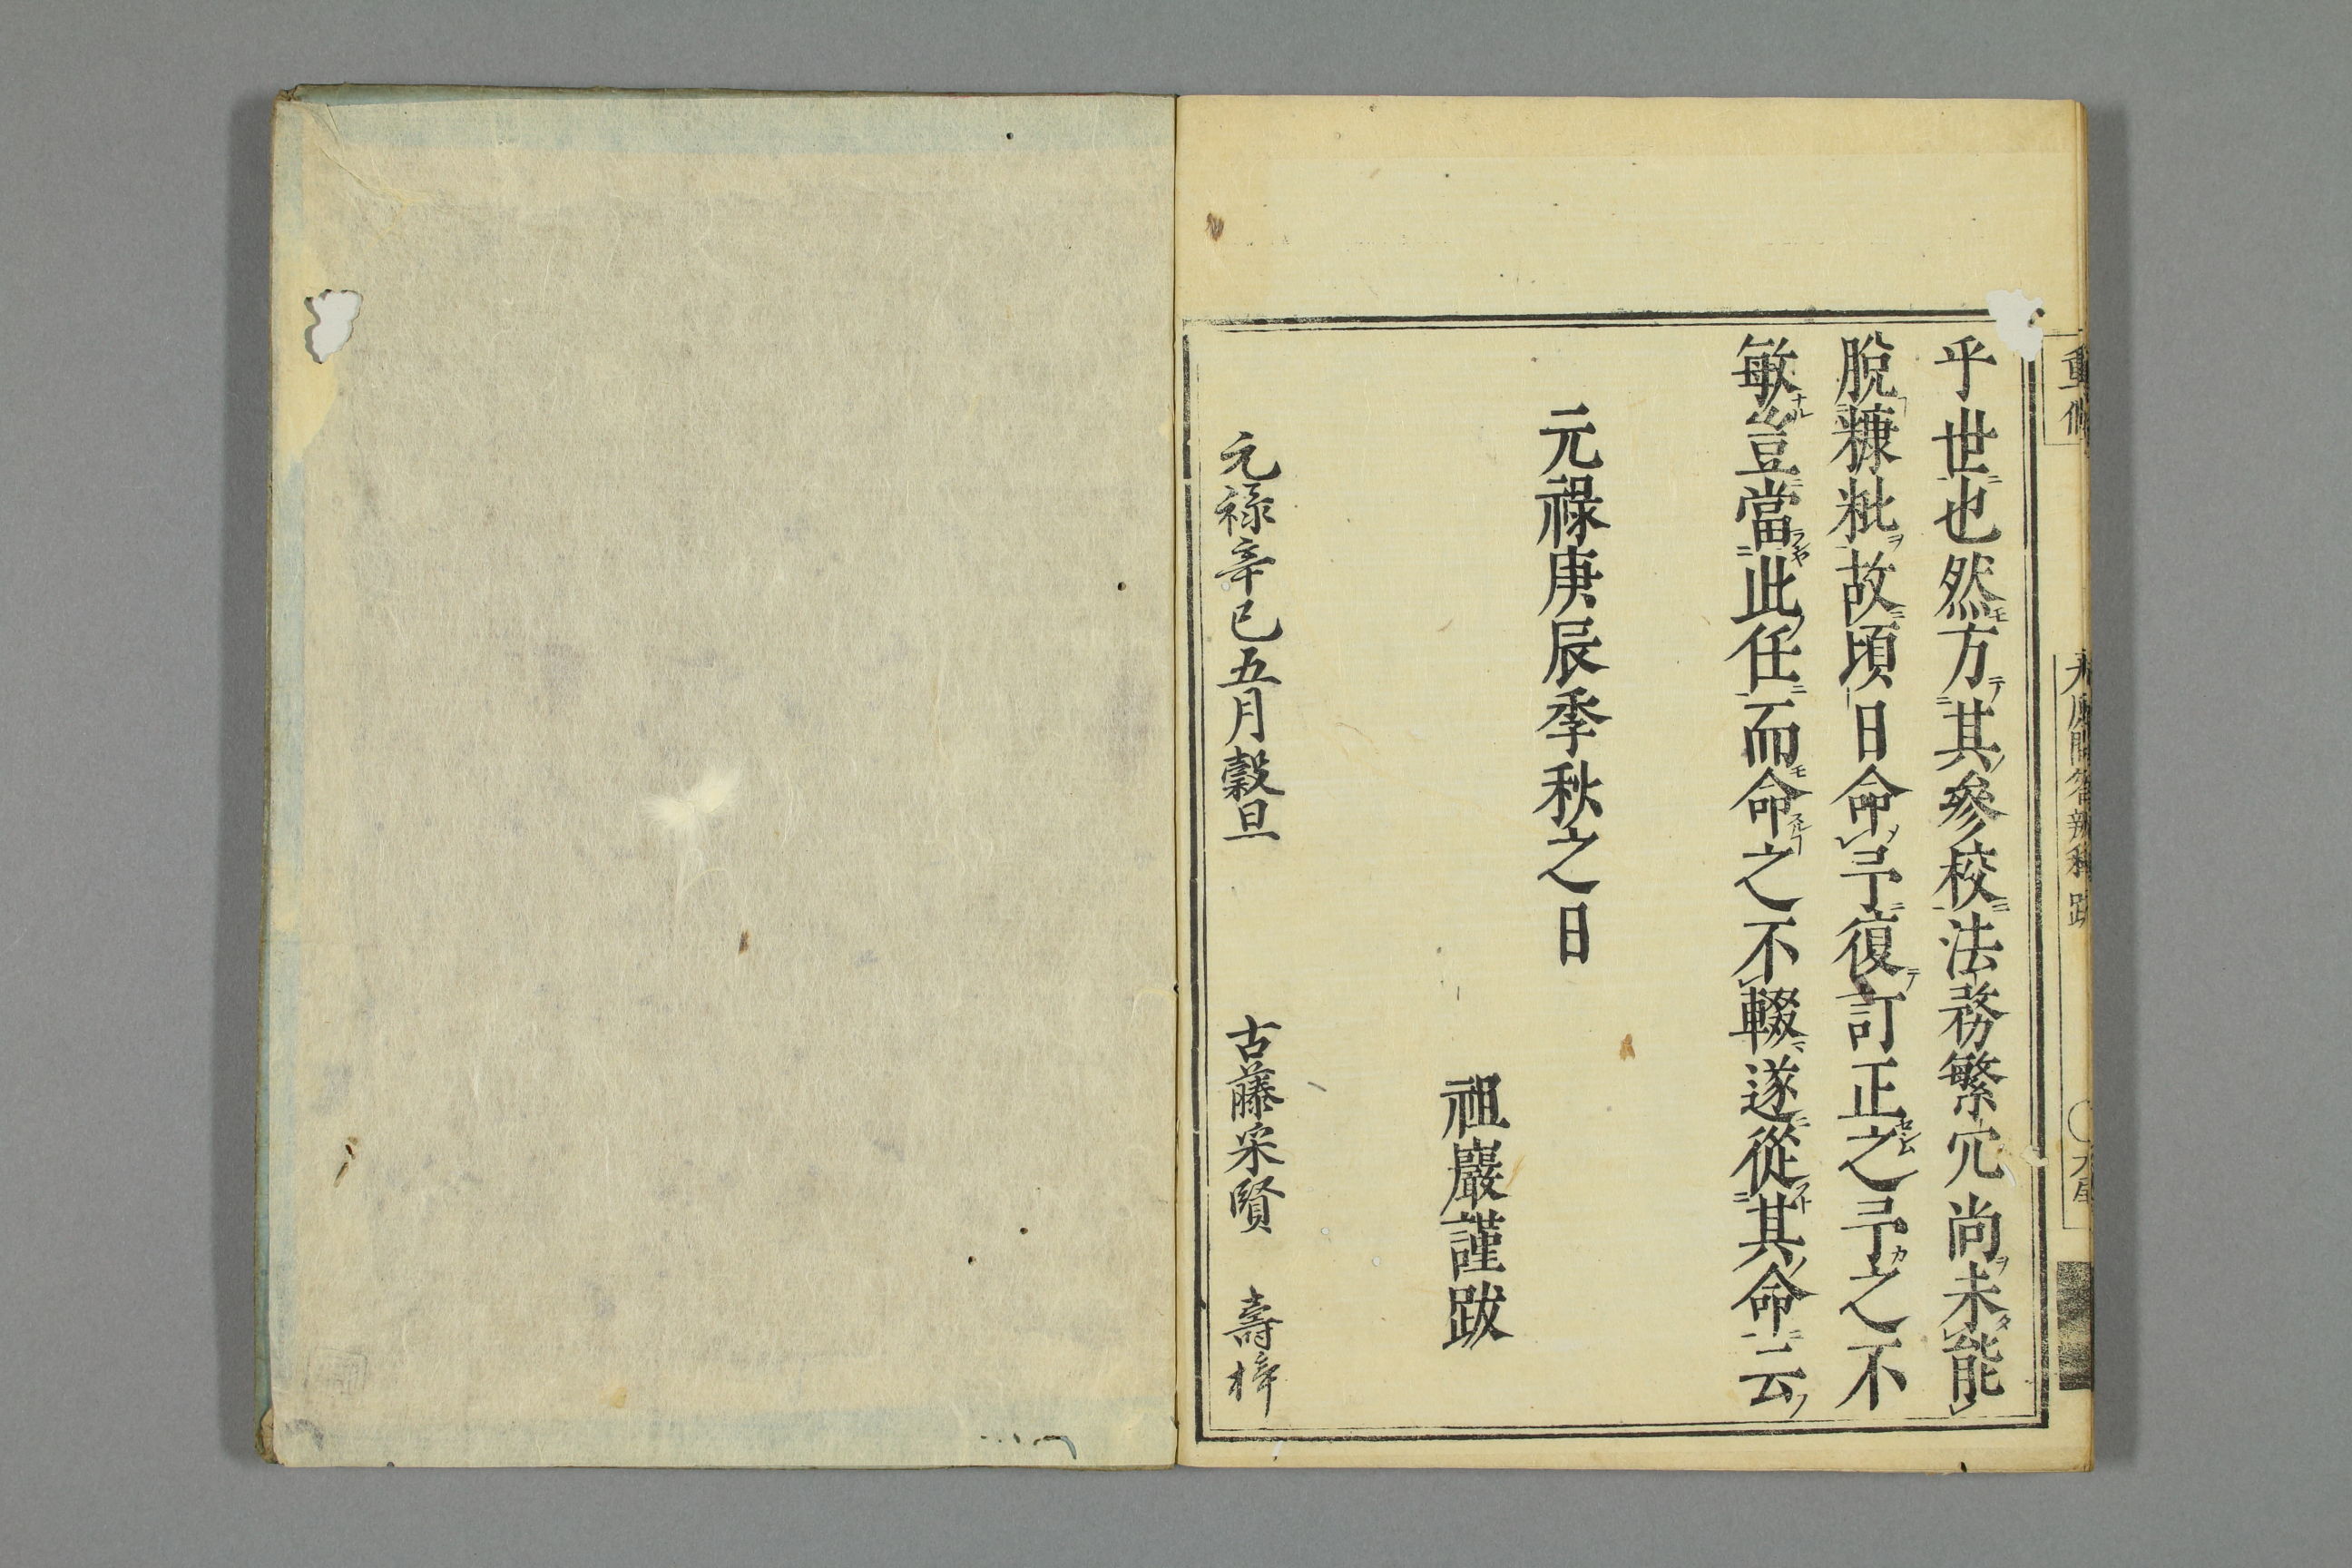 乎世也然方其參校法務繁冗尚未能
脫糠粃故頃日命予復訂正之予之不
敏豈當此任而命之不輟遂從其命云
元祿庚辰季秋之日
祖巖謹跋
元祿辛巳五月穀旦 古藤宗賢 壽梓